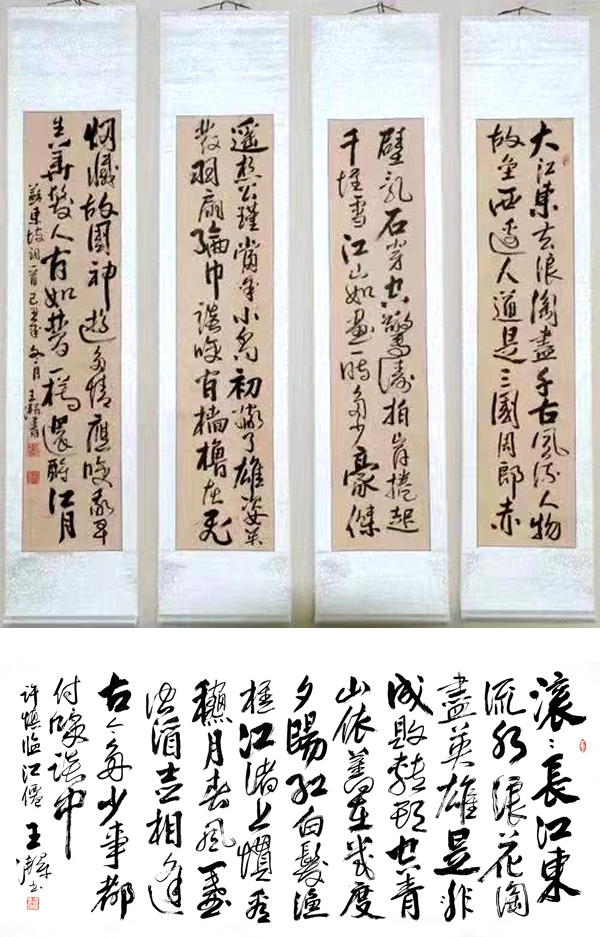 大江東去浪淘盡千古風流人物
故壘西邊人道是三國周郎赤
壁亂石穿空驚濤拍岸捲起
千堆雪江山如畫一時多少豪傑
遙想公瑾當年小喬初嫁了雄姿英
發羽扇綸巾談咲間檣櫓灰飛
烟滅故國神遊多情應咲我早
生華髮人間如夢一樽還酹江月
蘇東坡詞一首 己丑年冬月 王書
滾〻長江東
逝水浪花淘
盡英雄是非
成敗轉頭空青
山依舊在幾度
夕陽紅白髮漁
樵江渚上慣看
穐月春風一壺
濁酒喜相逢
古今多少事都
付咲談中
許慎臨江僊 王書